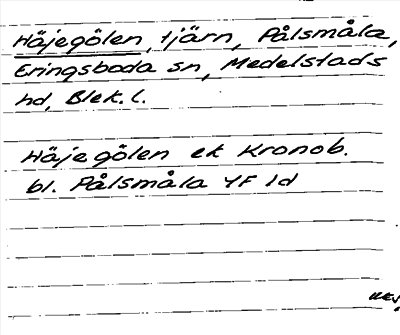 Häjegölen, tjärn, Pålsmåla,
Eringsboda sn, Medelstads
hd, Blek. l.
Häjegölen ek Kronob.
bl. Pålsmåla YF 1d